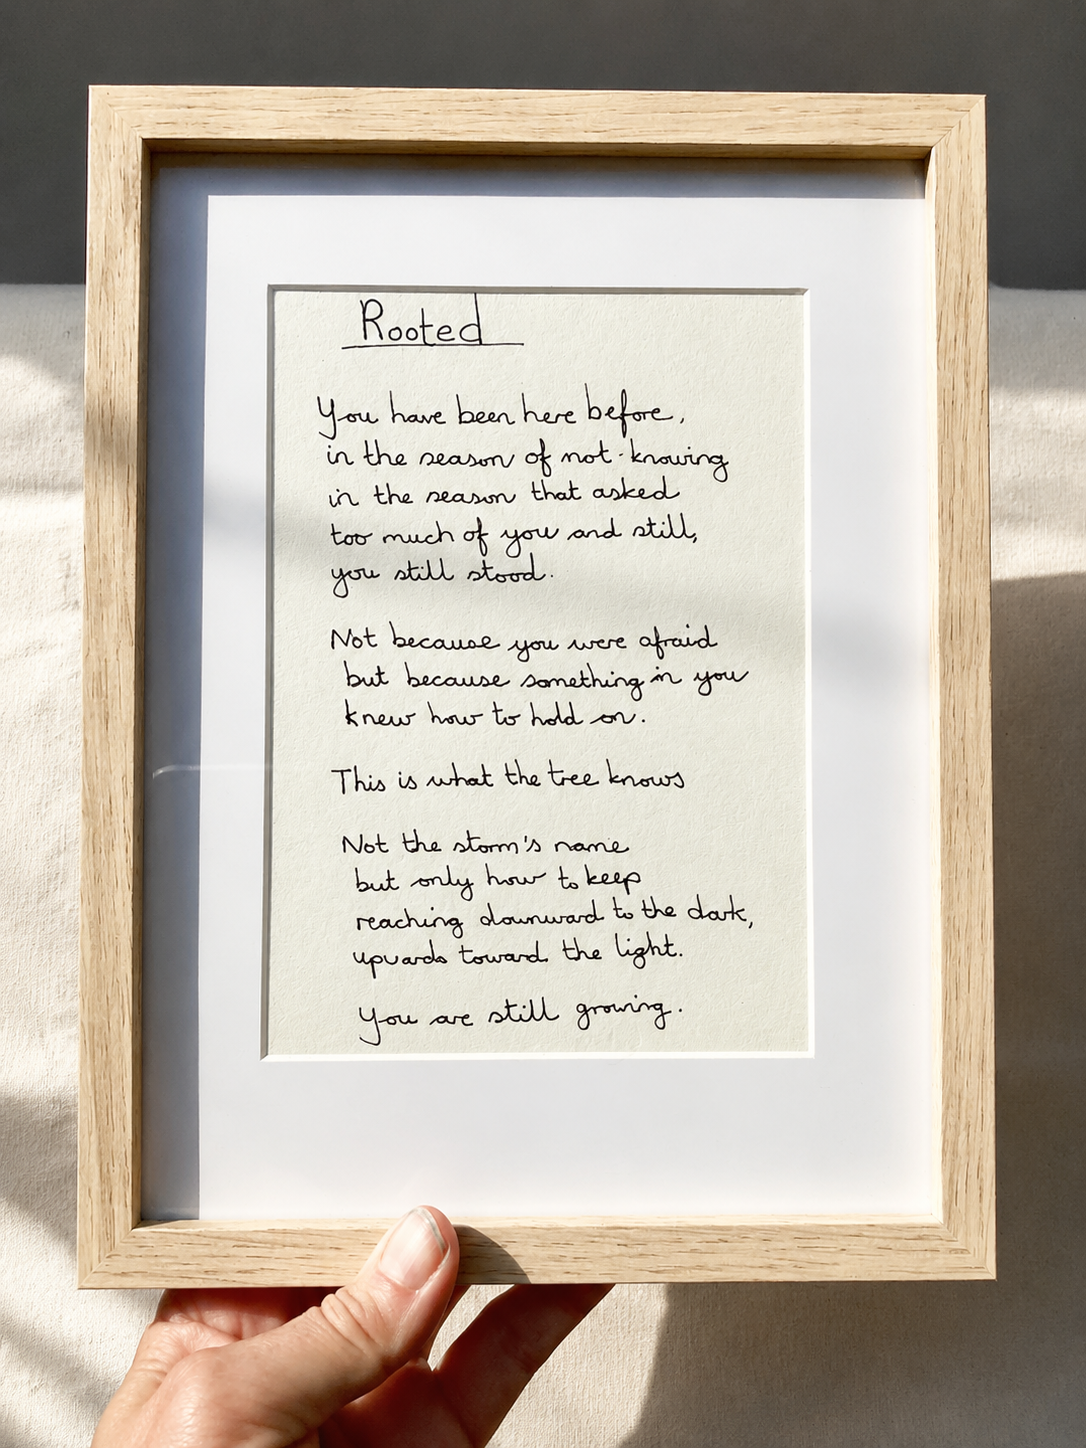 Rooted
You have been here before,
in the season of not-knowing
in the season that asked
too much of you and still,
you still stood.
Not because you were afraid
but because something in you
knew how to hold on.
This is what the tree knows
Not the storm's name
but only how to keep
reaching downward to the dark,
upwards toward the light.
You are still growing.